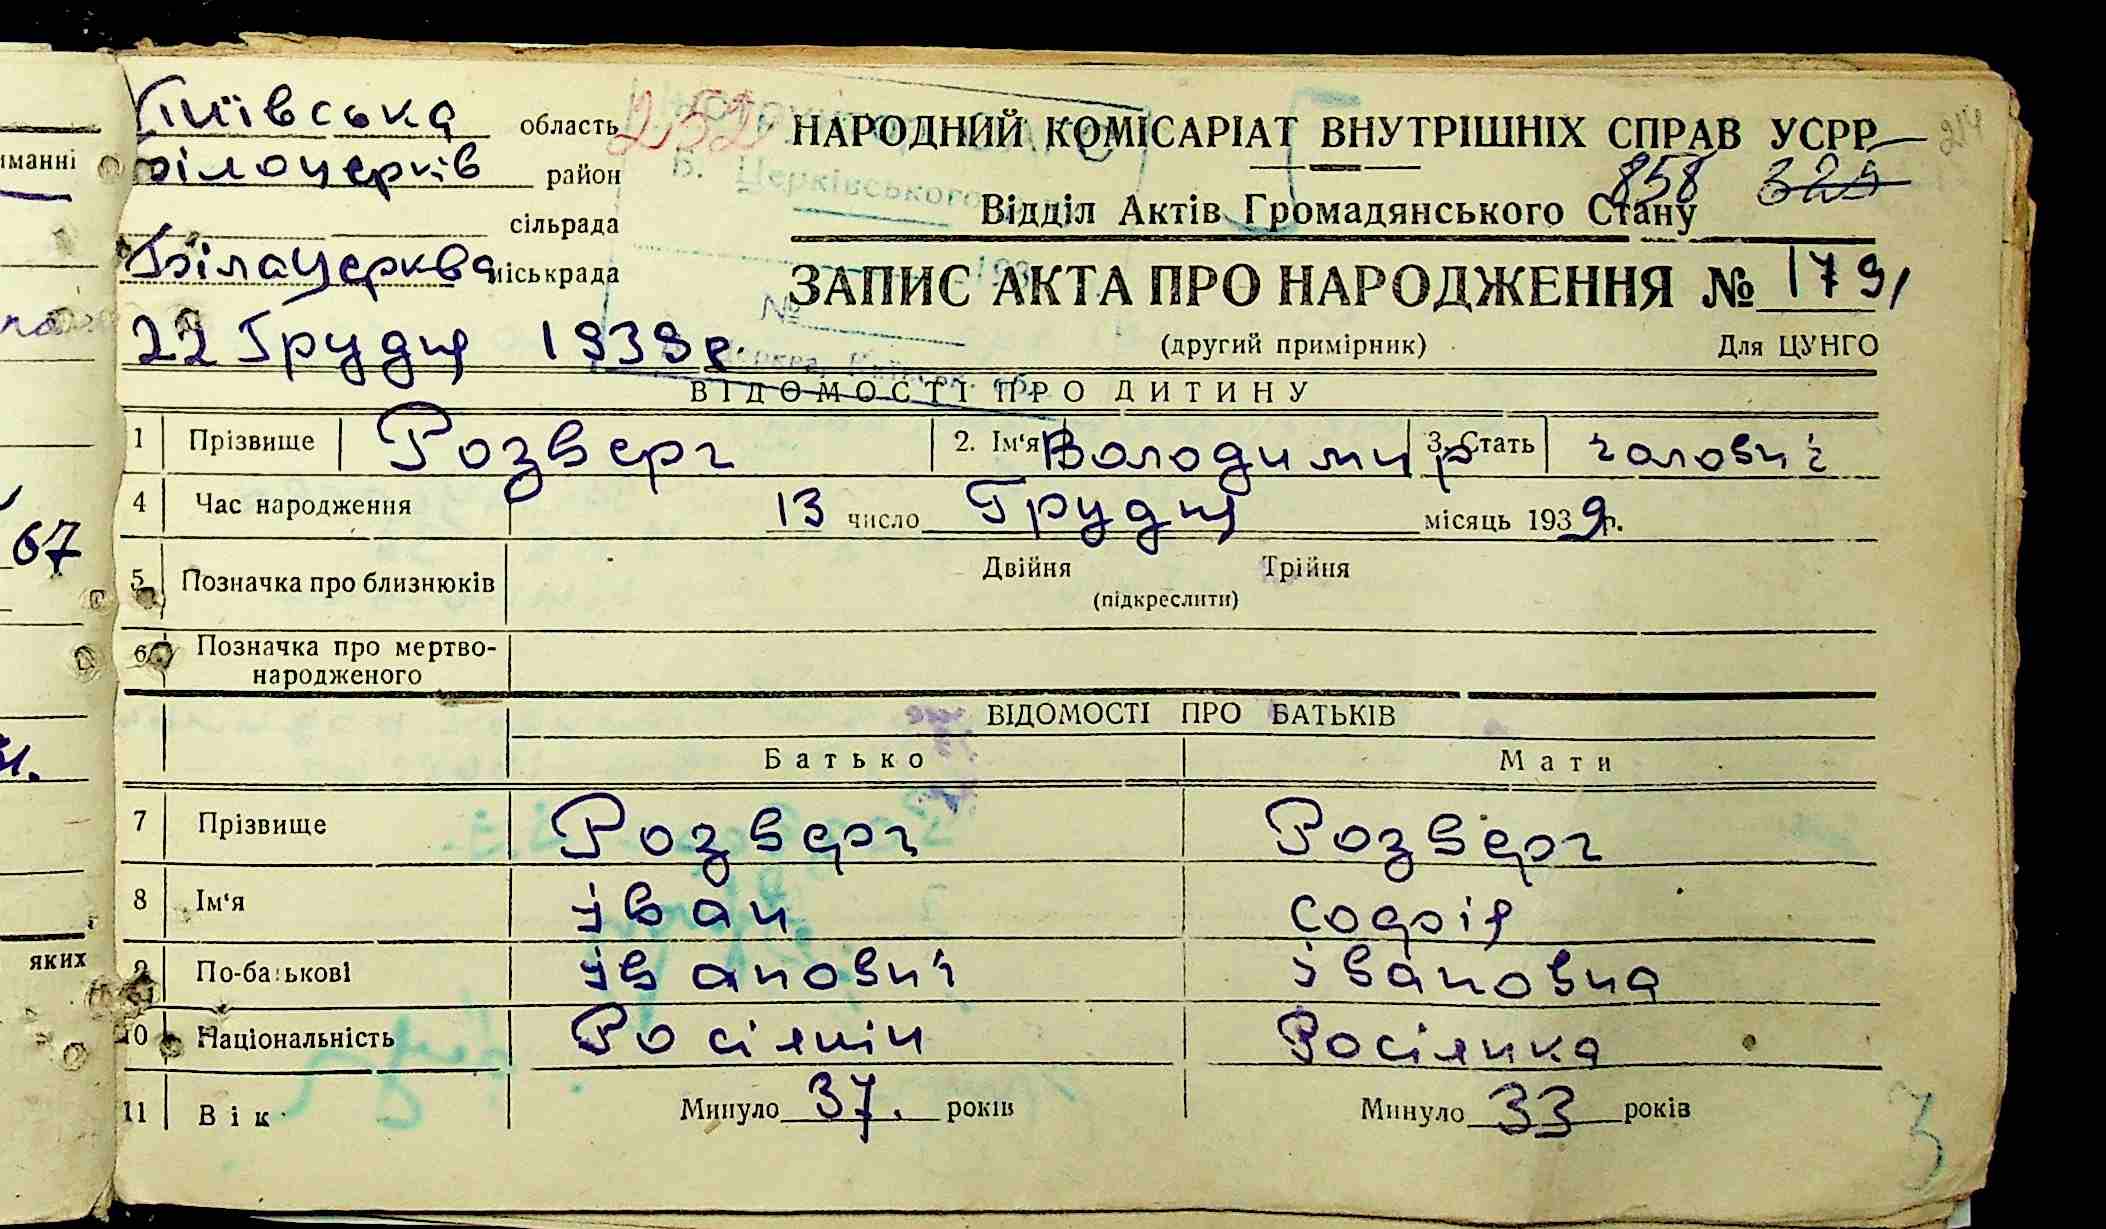 Київська область 252 НАРОДНИЙ КОМІСАРІАТ ВНУТРІШНІХ СПРАВ УСРР 214
Білоцерків район Б. Церківського 858 329
сільрада Відділ Актів Громадянського Стану
Білацерква міськрада ЗАПИС АКТА ПРО НАРОДЖЕННЯ № 1791
22 Грудня 1939 р. (другий примірник) Для ЦУНГО
№
ВІДОМОСТІ ПРО ДИТИНУ
1 Прізвище Розверг 2. Ім'я Володимир 3. Стать чолович
4 Час народження 13 число Грудня місяць 1939 р.
5 Позначка про близнюків Двійня Трійня
(підкреслити)
6 Позначка про мертво-
народженого
ВІДОМОСТІ ПРО БАТЬКІВ
Батько Мати
7 Прізвище Розверг Розверг
8 Ім'я Іван Софія
9 По-батькові Іванович Івановна
10 Національність Росіянін Росіянка
11 Вік Минуло 37. років Минуло 33 років
3
иманні
67
яких